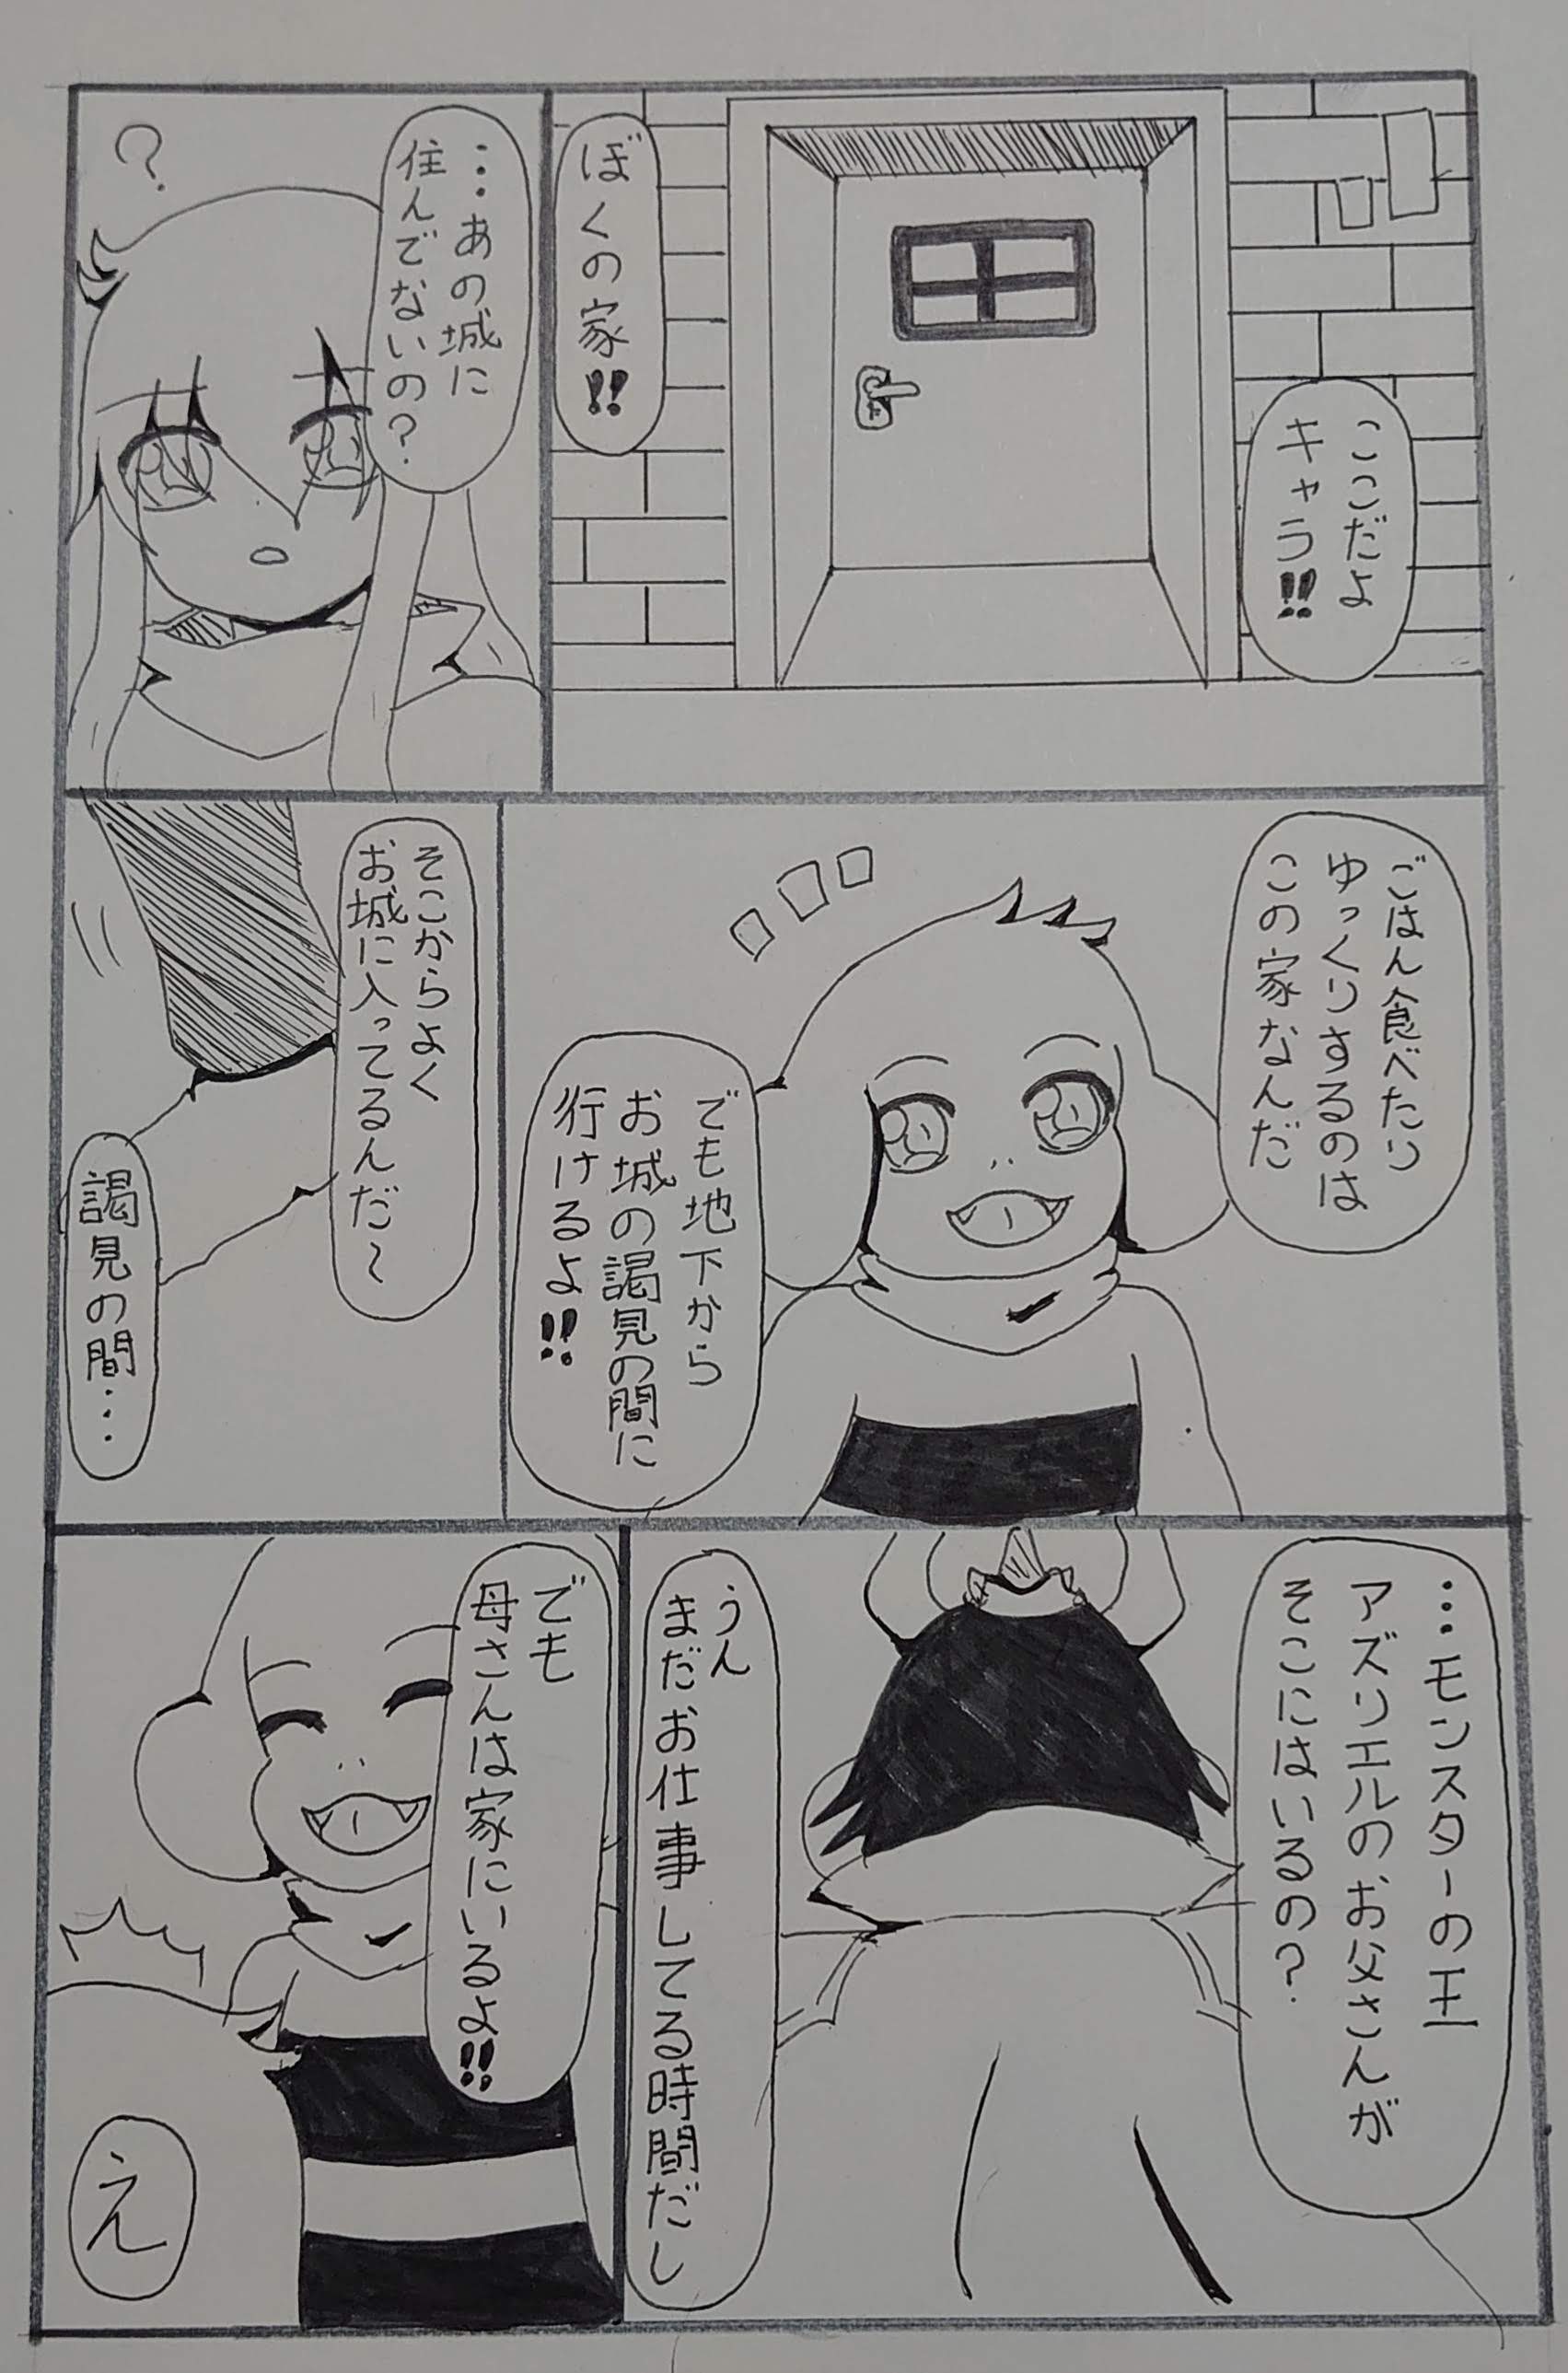 ここだよ
キャラ!!
ぼくの家!!
…あの城に
住んでないの?
?
ごはん食べたり
ゆっくりするのは
この家なんだ
でも地下から
お城の謁見の間に
行けるよ!!
そこからよく
お城に入ってるんだ〜
謁見の間…
…モンスターの王
アズリエルのお父さんが
そこにはいるの?
うん
まだお仕事してる時間だし
でも
母さんは家にいるよ!!
え